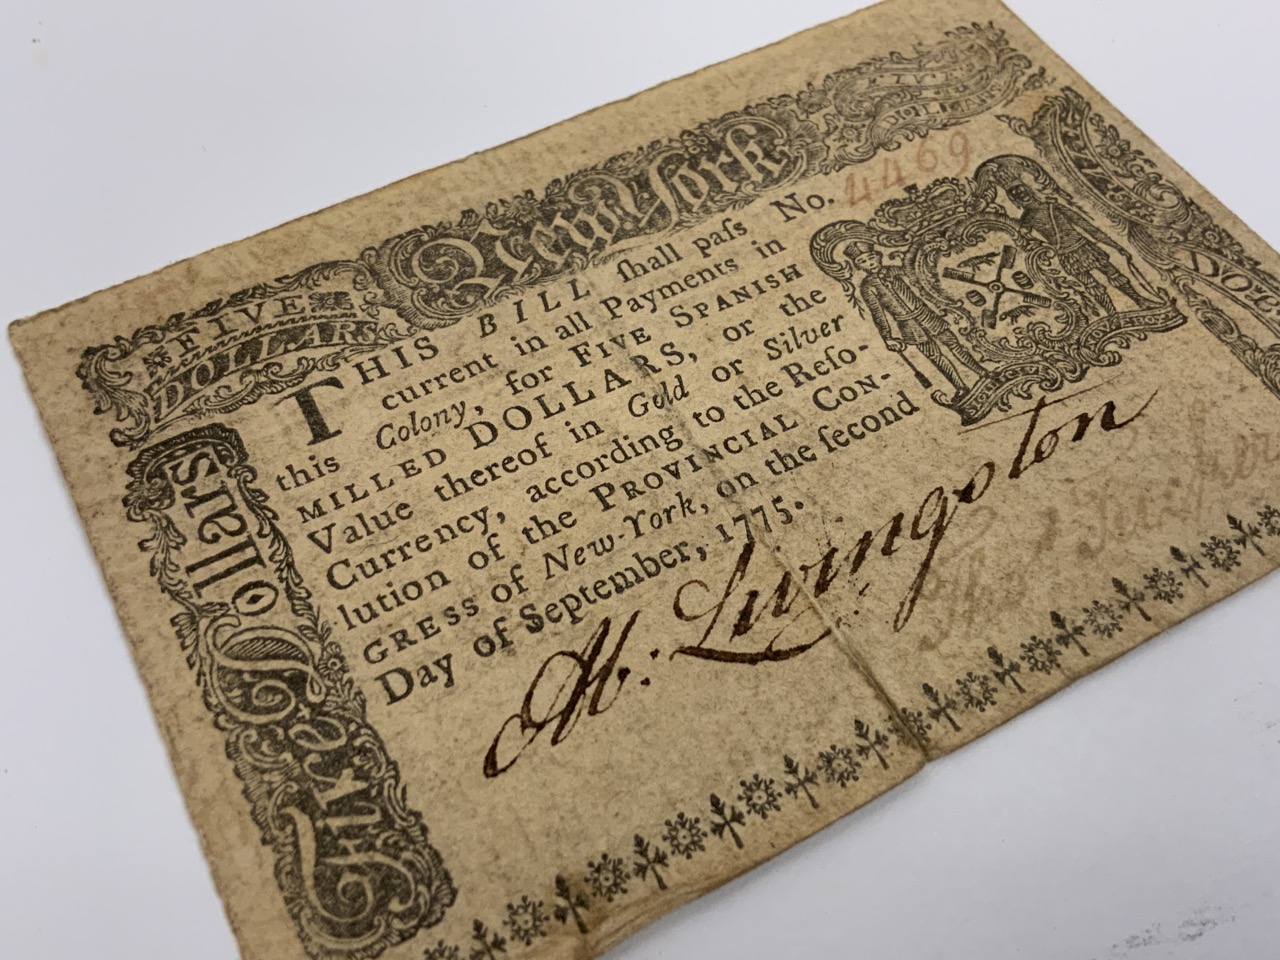 FIVE
DOLLARS
New York
FIVE
DOLLARS
No. 4469
THIS BILL ſhall paſs
current in all Payments in
this Colony, for FIVE SPANISH
MILLED DOLLARS, or the
Value thereof in Gold or Silver
Currency, according to the Reſo-
lution of the PROVINCIAL CON-
GRESS of New-York, on the ſecond
Day of September, 1775.
Five Dollars
H. Livingston